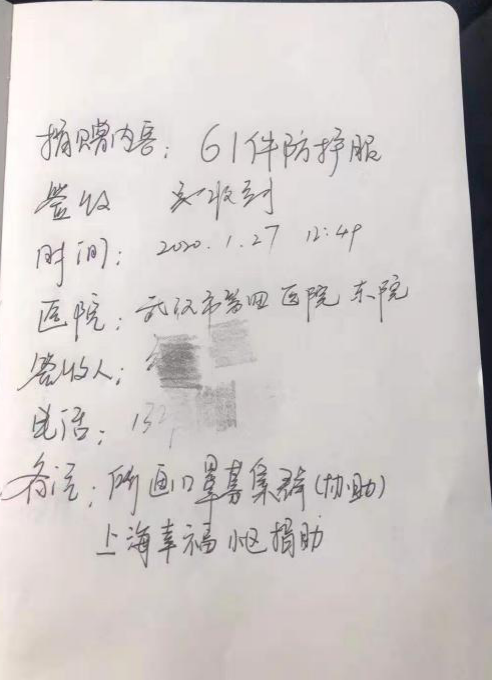 捐赠内容：61件防护服
签收 已收到
时间：2020.1.27 12:49
医院：武汉市第四医院东院
签收人：
电话：132
备注：所画口罩募集群(协助)
上海幸福小区捐助